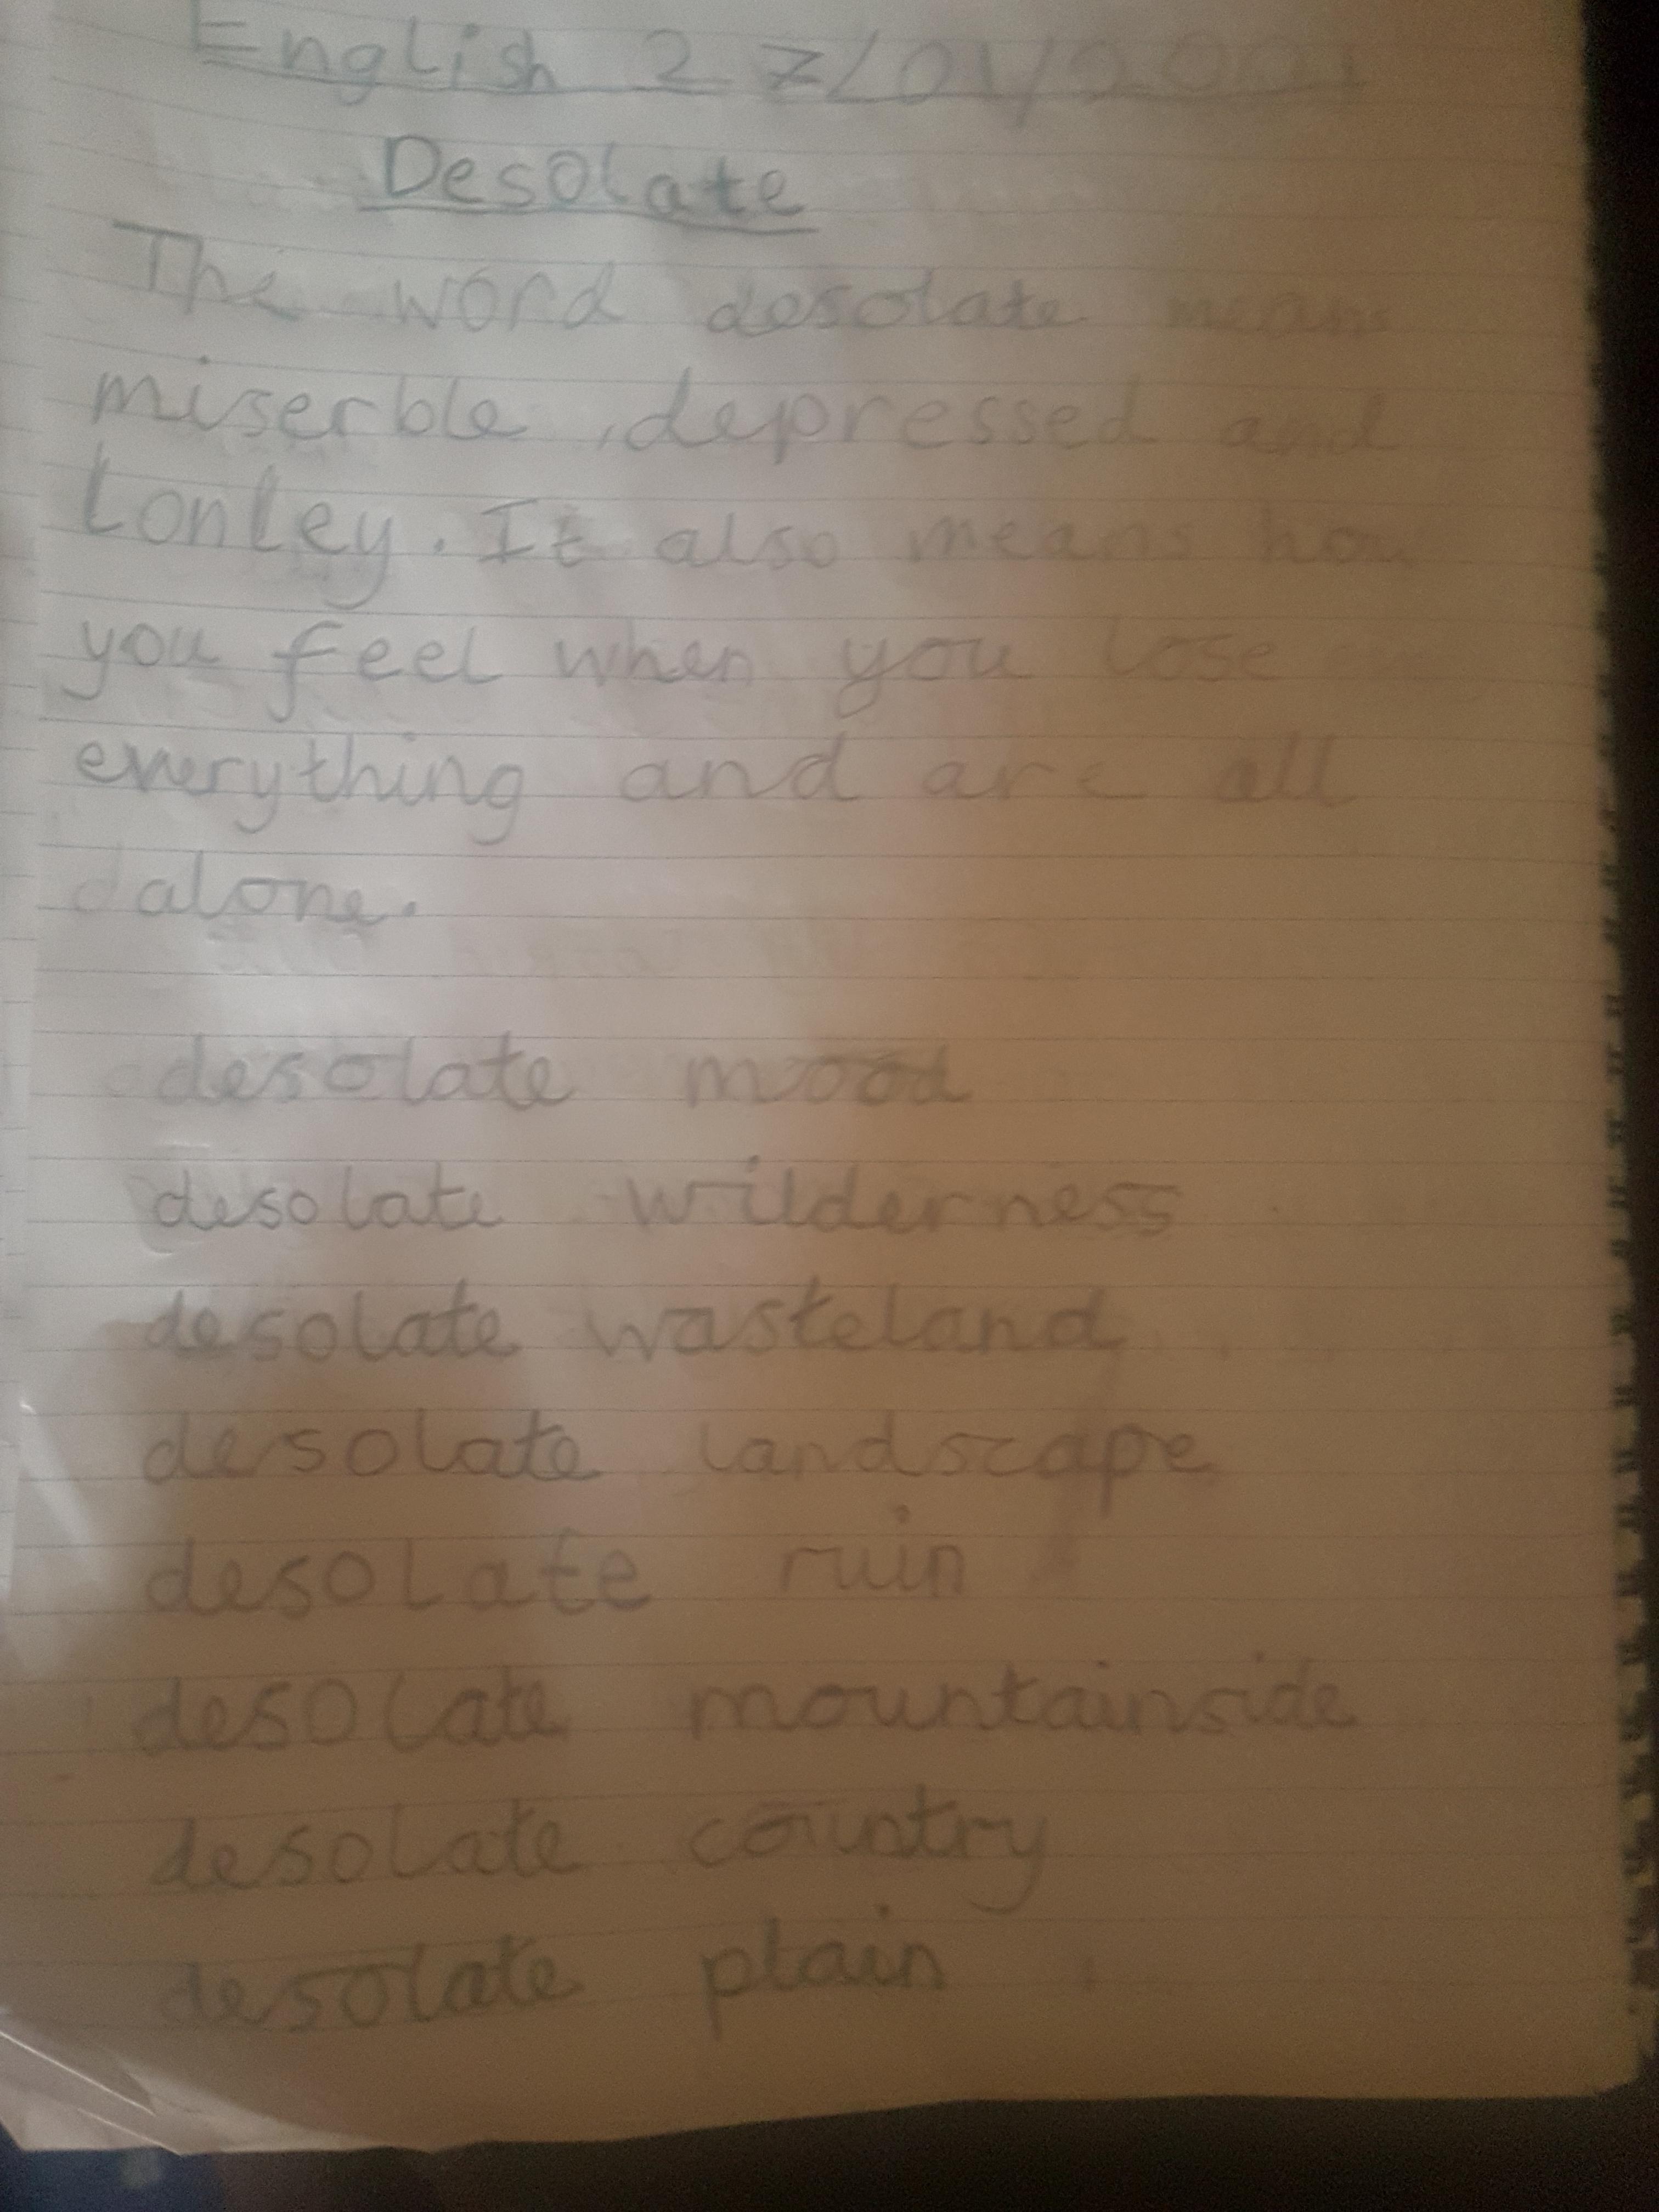 English 27/01/2021
Desolate
The word desolate means
miserble, depressed and
Lonley. It also means how
you feel when you lose
everything and are all
alone.
desolate mood
desolate wilderness
desolate wasteland
desolate landscape
desolate ruin
desolate mountainside
desolate country
desolate plain